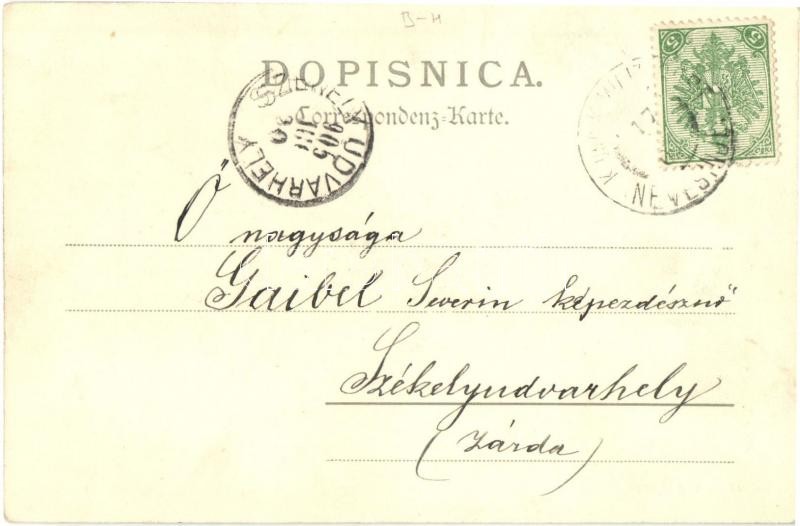 B-H
DOPISNICA.
Correspondenz-Karte.
SZÉKELY UDVARHELY
905
30
5 5
NEVESINJE
Ő nagysága
Gaibel Severin képezdésznő
Székelyudvarhely
(zárda)